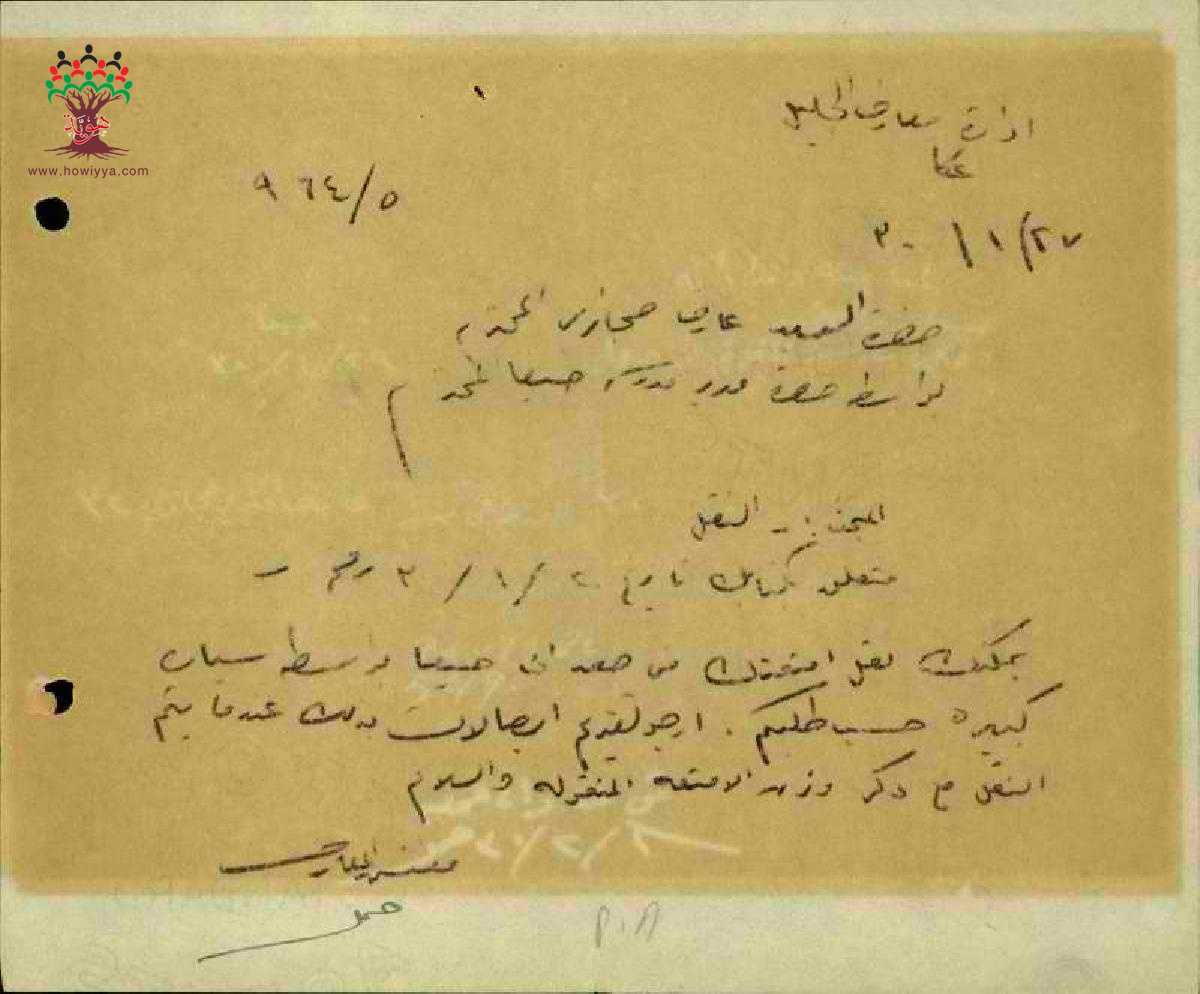 هوية
www.howiyya.com
ادارة معارف الجليل
عكا
٩٦٤/٥
٢٧/١/٣٠
حضرة السيد عارف حجازي المحترم
بواسطة حضرة مدير مدرسة المحترم
النقل
متعلق بكتابك تاريخ ٢٠/١/٣٠ رقم -
يمكنك نقل امتعتك من صفد الى بواسطة سيارة
كبيرة حسب طلبكم. ارجو تقديم ايصالات بذلك عندما يتم
النقل مع ذكر وزن الامتعة المنقولة والسلام
مفتش المعارف
P.A